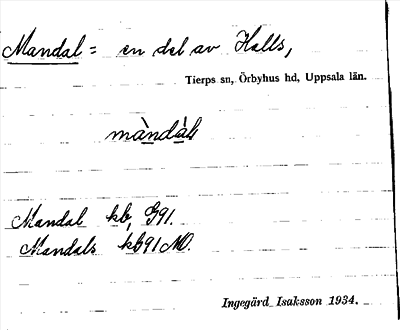 Mandal = en del av Halls,
Tierps sn, Örbyhus hd, Uppsala län.
màndàls
Mandal kb, G91.
Mandals kb91 MD.
Ingegärd Isaksson 1934.